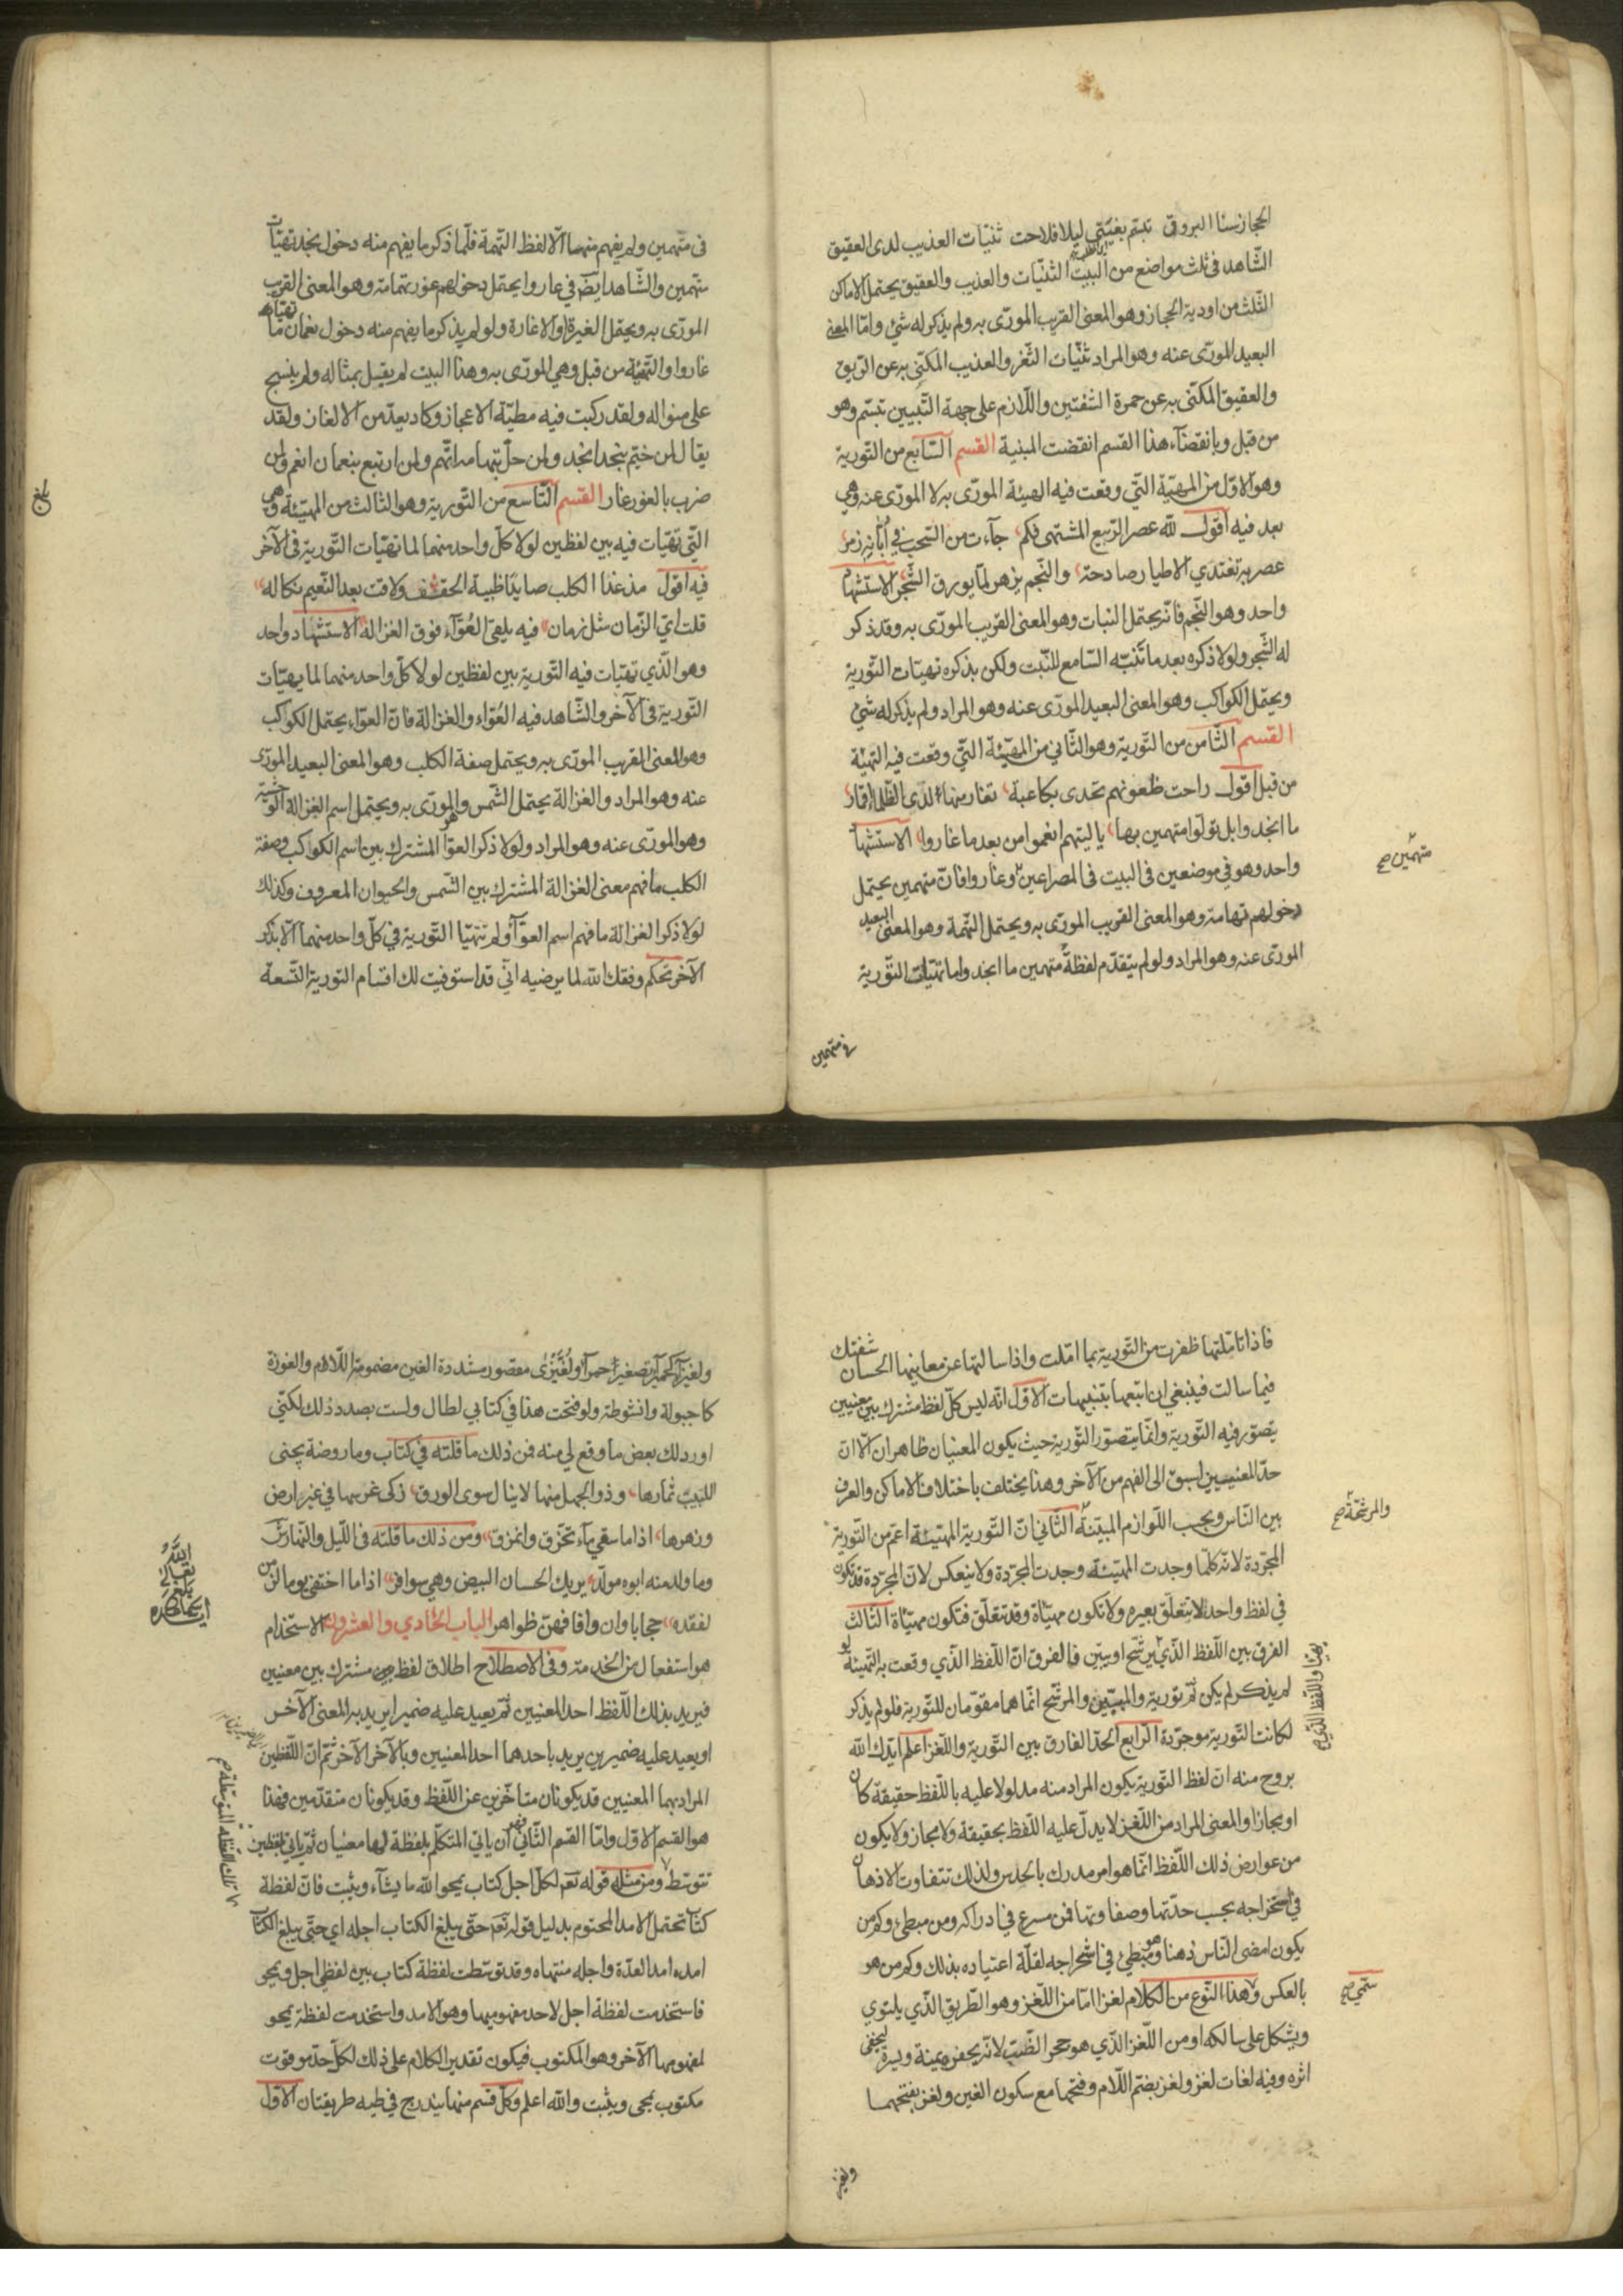 الحجاز سنا البروق تبسّم بغيتي ليلا فلاحت ثنيّات العذيب لدى العقيق
الشّاهد فى ثلث مواضع من البيت الثنيّات والعذيب والعقيق يحتمل الاماكن
الثّلث من اودية الحجاز وهو المعنى القريب المورّى به ولم يذكر له شئ وامّا المعنى
البعيد المورّى عنه وهو المراد ثنيّات الثّغر والعذيب المكنّى به عن الرّيق
والعقيق المكنّى به عن حمرة الشّفتين واللّازم على جهة التّبيين تبسّم وهو
من قبل وبانقضآء هذا القسم انقضت المبنية القسم السّابع من التّورية
وهو الاوّل من المهيّئة التّي وقعت فيه الهيئة المورّى به لا المورّى عنه وهى
بعد فيه اقول لله عصر الرّبيع المشتهى فكم جآءت من السّحب في ابّانه زمر
عصر به تغتدي الاطيار صادحة والنّجم يزهر لمّا يورق الشّجر الاستشهاد
واحد وهو النّجم فانّه يحتمل النبات وهو المعنى القريب المورّى به وقد ذكر
له الشّجر ولولا ذكره بعد ما تنبّه السّامع للنّبت ولكن بذكره تهيّات التّورية
ويحتمل الكواكب وهو المعنى البعيد المورّى عنه وهو المراد ولم يذكر له شئ
القسم الثّامن من التّورية وهو الثّاني من المهيّئة التّي وقعت فيه التهيئة
من قبل اقول راحت ظعونهم تحدى بكاعبة تغار منها لدى الظّلماء اقمار
ما انجد وابل تولّوا متهمين بها يا ليتهم انعموا من بعد ما غاروا الاستشهاد
واحد وهو في موضعين فى البيت فى المصراعين وغاروا فانّ متهمين يحتمل
متهمين صح
دخولهم تهامة وهو المعنى القريب المورّى به ويحتمل التّهمة وهو المعنى البعيد
المورّى عنه وهو المراد ولو لم يتقدّم لفظة متهمين ما انجد واما تهيّات التّورية
في متهمين
فى متّهمين ولم يفهم منها الّا لفظ التّهمة فلمّا ذكر ما يفهم منه دخول نجد تهيّات
متهمين والشّاهد ايضا في غاروا يحتمل دخولهم غور تهامة وهو المعنى القريب
المورّى به ويحتمل الغيرة او الاغارة ولو لم يذكر ما يفهم منه دخول نعمان ما تهيّات
غاروا والتّهيئة من قبل وهي المورّى به وهذا البيت لم يقيل بمثاله ولم ينسج
على منواله ولقد ركبت فيه مطيّة الاعجاز وكاد يعدّ من الالغاز ولقد
يقال لمن خيّم بنجد انجد ولمن حلّ بتهامه اتهم ولمن ارتبع بنعمان انعم ولمن
ضرب بالغور غار القسم التّاسع من التّورية وهو الثالث من المهيّئة وهى
بلغ
التّي تهيّات فيه بين لفظين لولا كلّ واحد منهما لما تهيّات التّورية فى الآخر
فيه اقول مذ غدا الكلب صايدًا ظبية الحقف ولاقت بعد النّعيم نكاله
قلت ايّ الزّمان مثل زمان فيه يلقى العُوّآء فوق الغزاله الاستشهاد واحد
وهو الّذي تهيّات فيه التّورية بين لفظين لولا كلّ واحد منهما لما يهيّات
التّورية فى الآخر والشّاهد فيه العُوّاء والغزالة فانّ العوّاء يحتمل الكواكب
وهو المعنى القريب المورّى به ويحتمل صفة الكلب وهو المعنى البعيد المورّى
عنه وهو المراد والغزالة يحتمل الشّمس وهو المورّى به ويحتمل اسم الغزالة الوحشيّة
وهو المورّى عنه وهو المراد ولولا ذكر العوّا المشترك بين اسم الكواكب وصفة
الكلب ما فهم معنى الغزالة المشترك بين الشّمس والحيوان المعروف وكذلك
لولا ذكر الغزالة ما فهم اسم العوّآ ولم تتهيّا التّورية في كلّ واحد منهما الّا بذكر
الآخر تحكم وفقك الله لما يرضيه انّي قد استوفيت لك اقسام التورية التّسعة
فاذا تامّلتها ظفرت من التّورية بما امّلت واذا سالتها عن معانيها الحسان شفتك
فيما سالت فينبغي ان اتبعها بتنبيهات الاوّل انّه ليس كلّ لفظ مشترك بين معنيين
يتصوّر فيه التّورية وانّما يتصوّر التّورية حيث يكون المعنيان ظاهران الّا انّ
احد المعنيين اسبق الى الفهم من الآخر وهذا يختلف باختلاف الاماكن والعرف
بين النّاس وبحسب اللّوازم المبيّنة الثّاني انّ التّورية المهيّئة اعمّ من التّورية
والمرشّحة صح
المجرّدة لانّه كلّما وجدت المهيّئة وجدت المجرّدة ولا ينعكس لانّ المجرّدة قد تكون
في لفظ واحد لا يتعلّق بغيره ولا تكون مهيّاة وقد تتعلّق فتكون مهيّاة الثّالث
الفرق بين اللّفظ الذّي يرشّح او يبيّن فالفرق انّ اللّفظ الذّي وقعت به التّهيئة لو
لم يذكر لم يكن ثمّ تورية والمبيّن والمرشّح انّما هما مقوّمان للتّورية فلو لم يذكر
لكانت التّورية موجودة الرّابع الحدّ الفارق بين التّورية واللّغز اعلم ايّدك الله
بروح منه انّ لفظ التورية يكون المراد منه مدلولا عليه باللّفظ حقيقة كان
او مجازا والمعنى المراد من اللّغز لا يدلّ عليه اللّفظ بحقيقة ولا مجاز ولا يكون
من عوارض ذلك اللّفظ انّما هو امر مدرك بالحدس ولذلك تتفاوت الاذهان
في استخراجه بحسب حدّتها وصفاوتها فمن مسرع في ادراكه ومن مبطئ وكم من
يكون امضى النّاس ذهنا وهو مبطئ في استخراجه لقلّة اعتياده بذلك وكم من هو
بالعكس وهذا النّوع من الكلام لغزا امّا من اللّغز وهو الطّريق الّذي يلتوي
سمّي صح
ويشكل على سالكه او من اللّغز الذّي هو حجر الضّبّ لانّه يحفره يمنة ويسرة ليخفى
اثره وفيه لغات لغز ولغز بضمّ اللّام وفتحها مع سكون الغين ولغز بفتحهما
ولغيز
ولغيزآء كحميرآء تصغير احمرآ ولُغَّيزٰى مقصور مشددة الغين مضمومة اللّام والغوزة
كاجبولة وانشوطة ولو فتحت هذا في كتابي لطال ولست بصدد ذلك لكنّي
اورد لك بعض ما وقع لي منه فمن ذلك ما قلته في كتاب وما روضة يجنى
اللبيب ثمارها وذو الجهل منها لا ينال سوى الورق زكى غرسها في غير ارض
وزهرها اذا ما سقي مآء تخرّق وانمزق ومن ذلك ما قلته فى اللّيل والنّهار
وما ولد منه ابوه مولّد يريك الحسان البيض وهي سوافر اذا ما اختفى يوما لزمن
لفقده حجابا وان وافا فهنّ ظواهر الباب الحادي والعشرون الاستخدام
هو استفعال من الخدمة وفى الاصطلاح اطلاق لفظ مشترك بين معنيين
فيريد بذلك اللّفظ احد المعنيين ثمّ يعيد عليه ضميرا يريد به المعنى الآخر
او يعيد عليه ضميرين يريد باحدهما احد المعنيين وبالآخر الآخر ثمّ انّ اللّفظين
المراد بهما المعنيين قد يكونان متاخّرين عن اللّفظ وقد يكونان متقدّمين فهذا
هو القسم الاوّل وامّا القسم الثّاني فهو ان ياتي المتكلّم بلفظة لها معنيان ثمّ ياتي بلفظين
تتوسّط ومن مثله قوله تعٓ لكلّ اجل كتاب يمحو الله ما يشآء ويثبت فانّ لفظة
تلك اللّفظة المتوسّطة صح
كتاب تحتمل الامد المحتوم بدليل قوله تعٓ حتّى يبلغ الكتاب اجله اي حتّى يبلغ الكتاب
امده امد العدّة واجله منتهاه وقد توسّطت لفظة كتاب بين لفظي اجل ويمحو
فاستخدمت لفظة اجل لاحد مفهوميها وهو الامد واستخدمت لفظة يمحو
لمفهومها الآخر وهو المكتوب فيكون تقدير الكلام على ذلك لكلّ حدّ موقوت
مكتوب يمحى ويثبت والله اعلم وكلّ قسم منهما يندرج في طيه طريقتان الاوّل